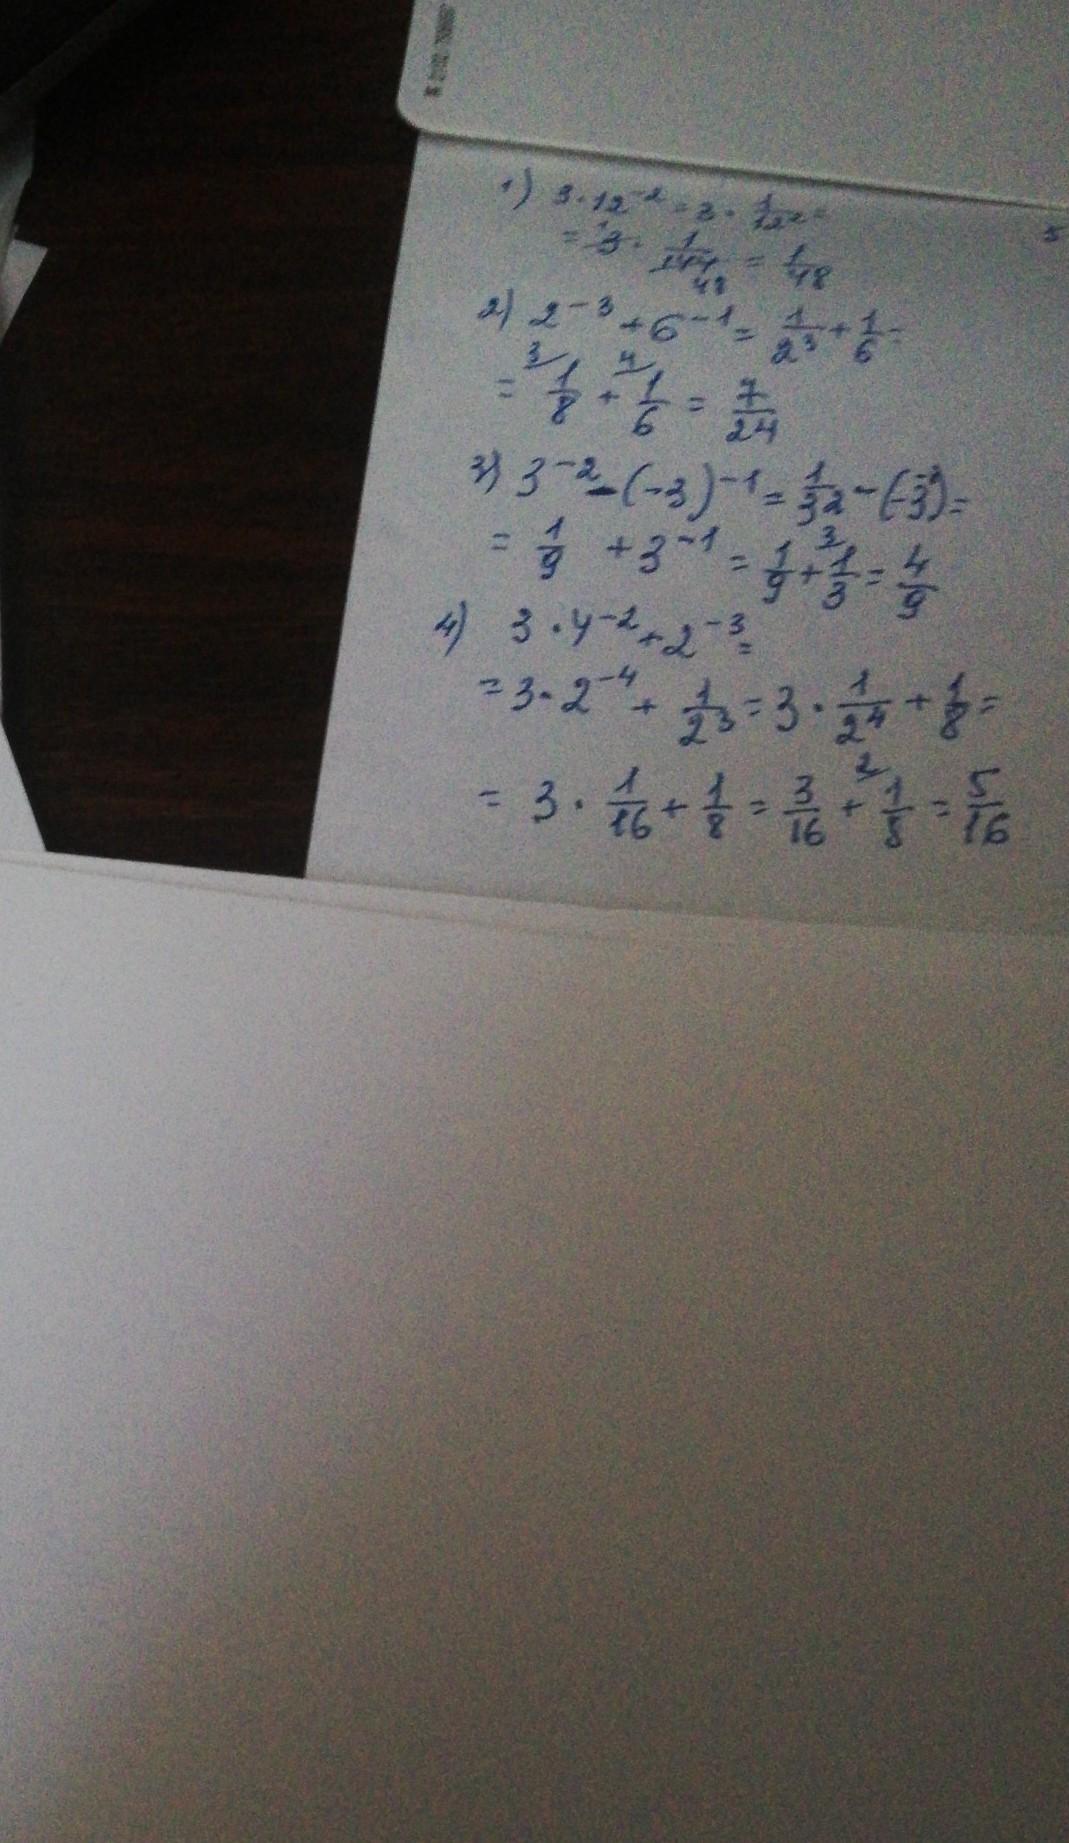 1) 3 · 12⁻² = 3 · 1/12² =
= 3 · 1/144 = 1/48
48
2) 2⁻³ + 6⁻¹ = 1/2³ + 1/6 =
= ³⁄ 1/8 + ⁴⁄ 1/6 = 7/24
3) 3⁻² - (-3)⁻¹ = 1/32 - (-3⁻¹) =
= 1/9 + 3⁻¹ = 1/9 + ³⁄ 1/3 = 4/9
4) 3 · 4⁻² + 2⁻³ =
= 3 · 2⁻⁴ + 1/2³ = 3 · 1/2⁴ + 1/8 =
= 3 · 1/16 + 1/8 = 3/16 + ²⁄ 1/8 = 5/16